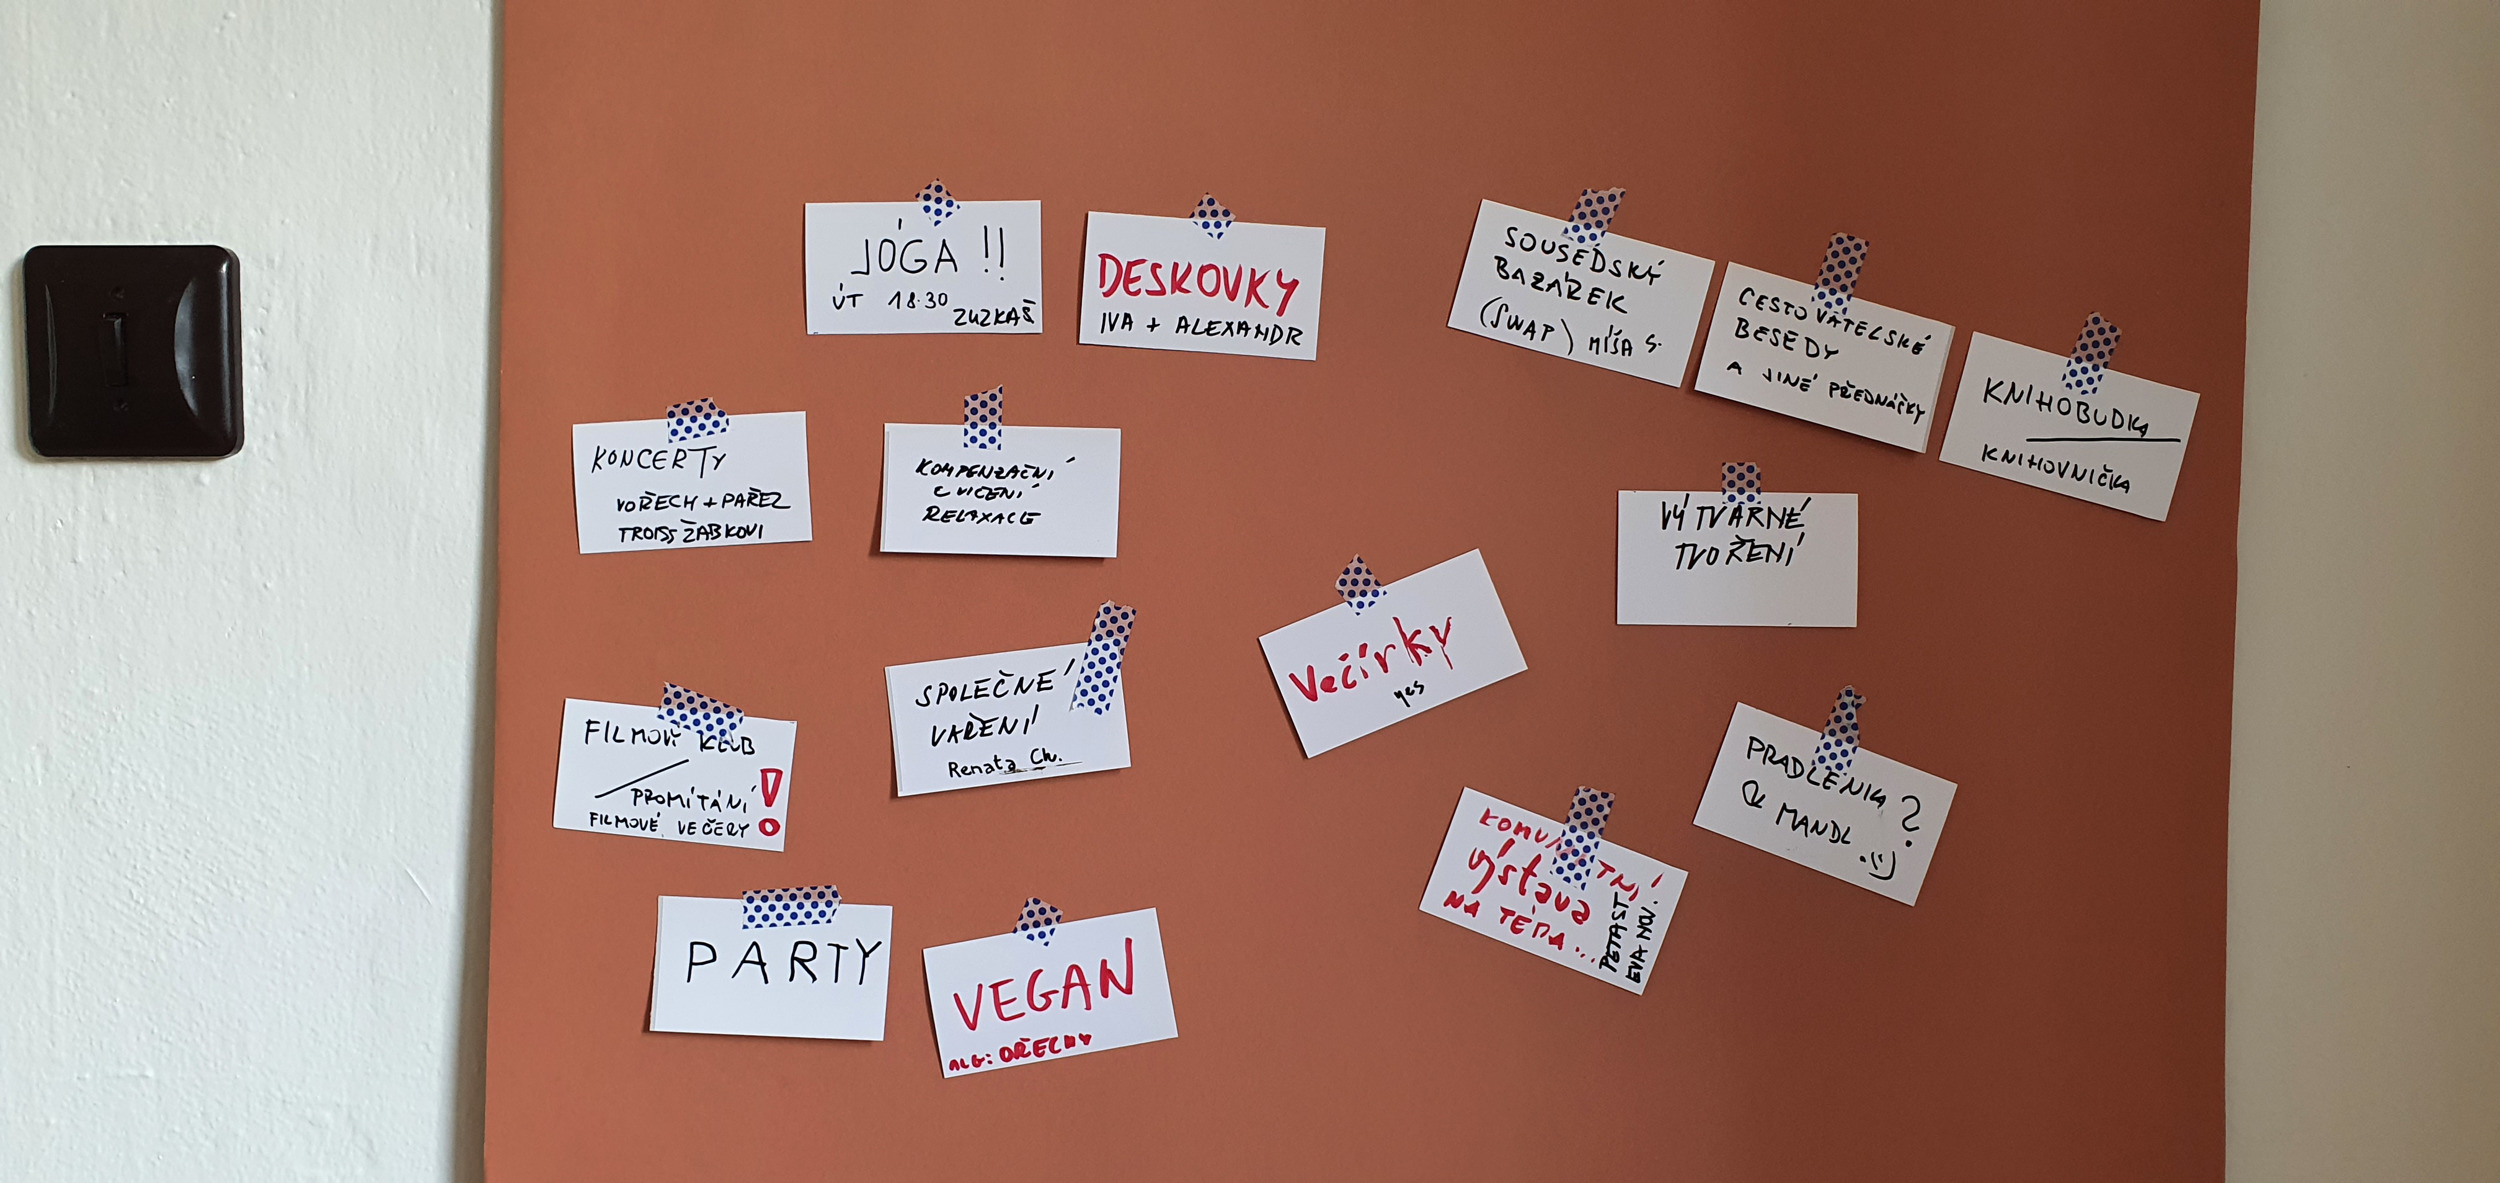 JÓGA !!
ÚT 18.30
ZUZKA Š
DESKOVKY
IVA + ALEXANDR
SOUSEDSKÝ
BAZÁREK
(SWAP) MÍŠA S.
CESTOVATELSKÉ
BESEDY
A JINÉ PŘEDNÁŠKY
KNIHOBUDKA
KNIHOVNIČKA
KONCERTY
VOŘECH + PAŘEZ
ŽABKOVI
KOMPENZAČNÍ
CVIČENÍ
RELAXACE
VÝTVARNÉ
TVOŘENÍ
FILMOVÝ KLUB
PROMÍTÁNÍ
FILMOVÉ VEČERY !
SPOLEČNÉ
VAŘENÍ
Renata Ch.
Večírky
yes
PRADLENKA ?
& MANDL :)
KOMUNITNÍ
výstava
NA TÉMA...
EVA NOV.
PARTY
VEGAN
ALG: OŘECHY